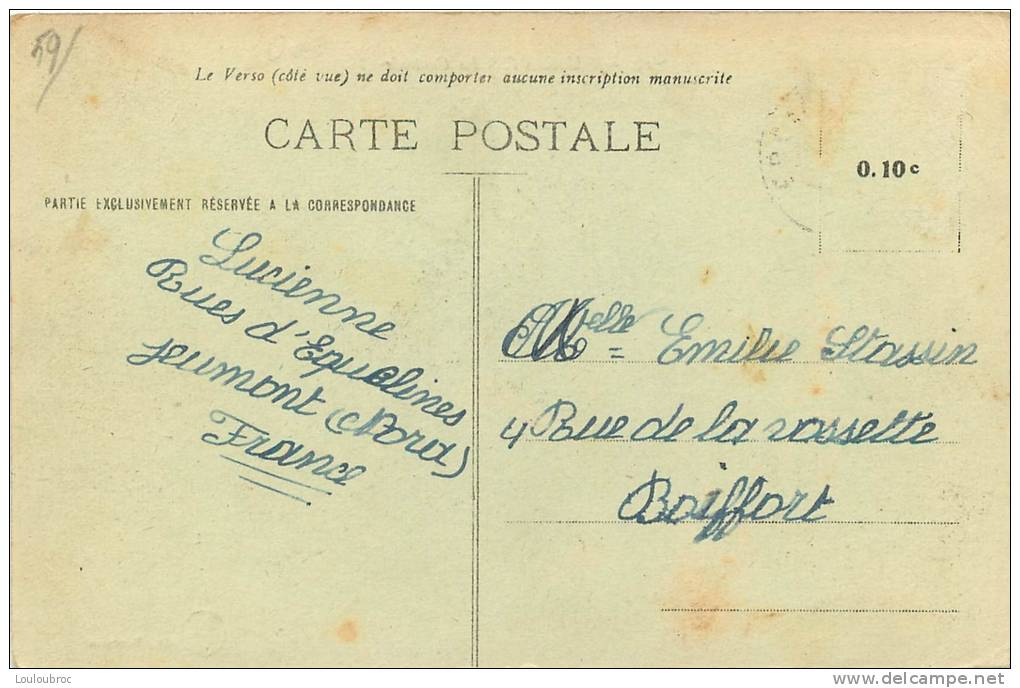 59/
Le Verso (côté vue) ne doit comporter aucune inscription manuscrite
CARTE POSTALE
0.10 c
PARTIE EXCLUSIVEMENT RÉSERVÉE A LA CORRESPONDANCE
Lucienne
Rues d'Equelines
Jeumont (Nord)
France
Melle = Emilie Stassin
4 Rue de la vassette
Boiffort
Louloubroc
delcampe.net